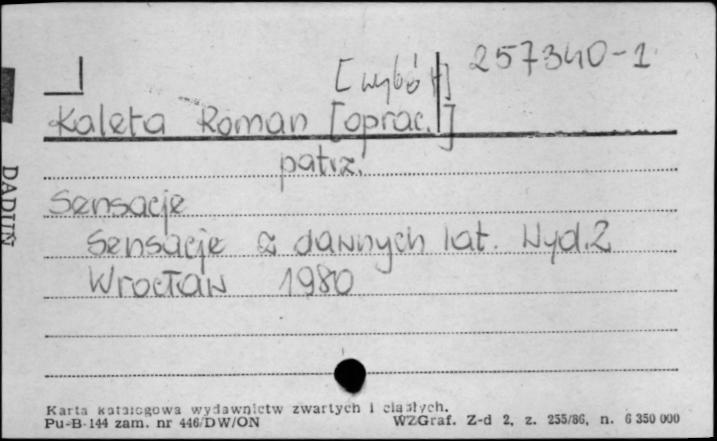 [wybór] 257340-1
Kaleta Roman [oprac.]
patrz:
Sensacje
Sensacje z dawnych lat. Wyd. 2
Wrocław 1980
Karta katalogowa wydawnictw zwartych i ciągłych.
Pu-B-144 zam. nr 446/DW/ON WZGraf. Z-d 2, z. 255/86, n. 6 350 000
DADIŃ